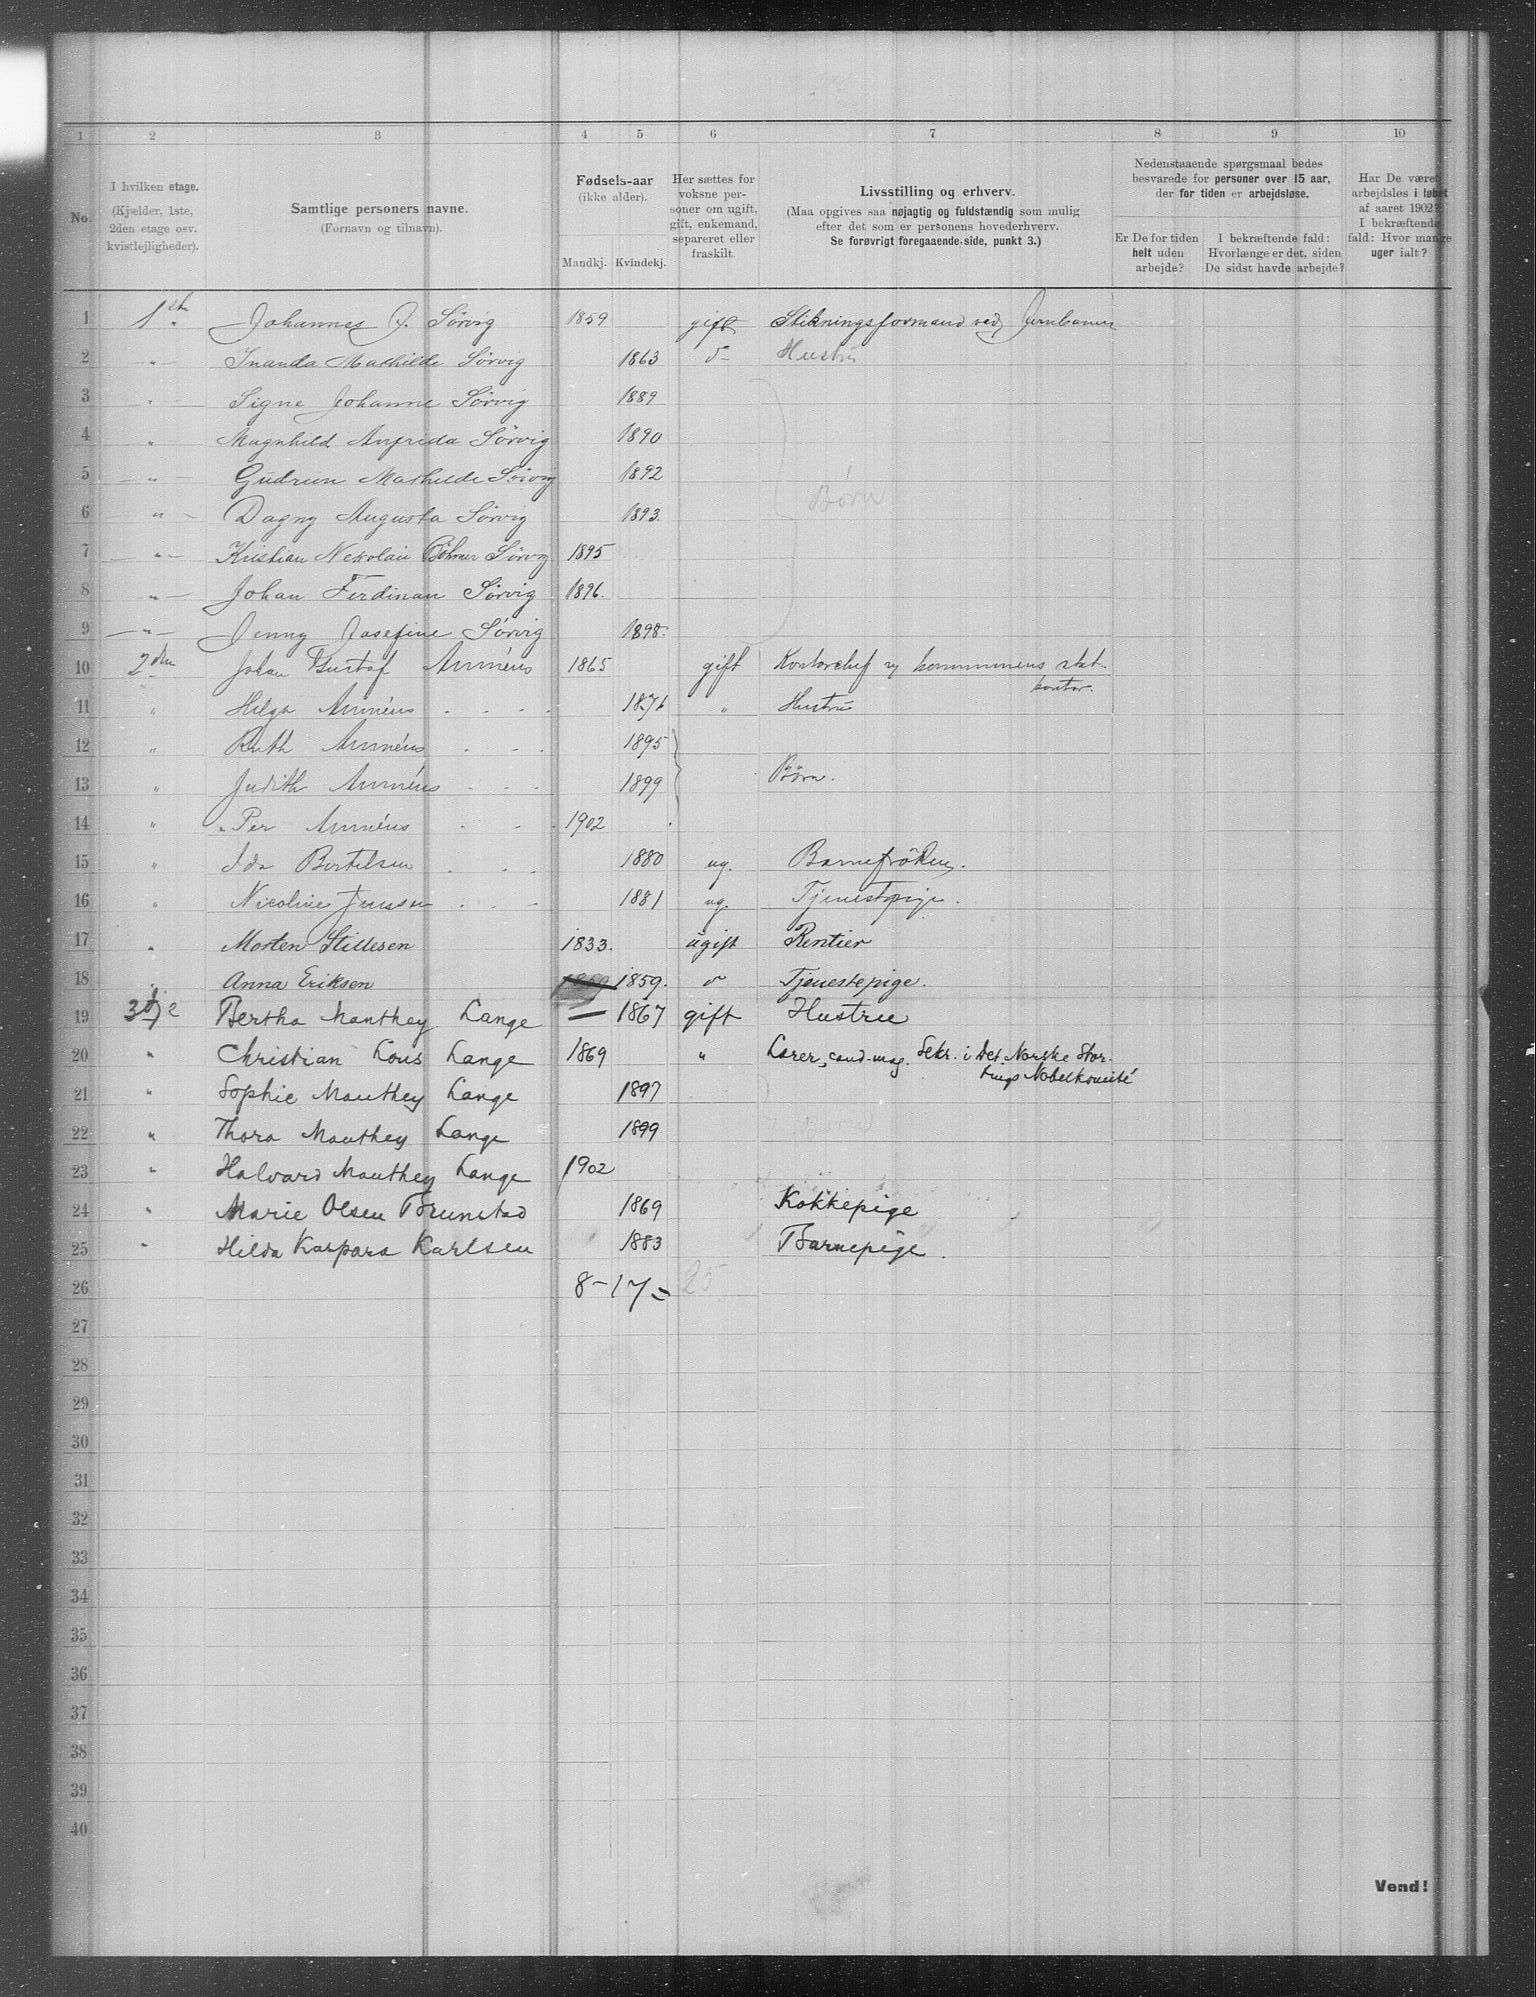 1 2 3 4 5 6 7 8 9 10
No.
I hvilken etage.
(Kjælder, 1ste,
2den etage osv.
kvistlejligheder).
Samtlige personers navne.
(Fornavn og tilnavn).
Fødsels-aar
(ikke alder).
Mandkj. Kvindekj.
Her sættes for
voksne per-
soner om ugift,
gift, enkemand,
separeret eller
fraskilt.
Livsstilling og erhverv.
(Maa opgives saa nøjagtig og fuldstændig som mulig
efter det som er personens hovederhverv.
Se forøvrigt foregaaende side, punkt 3.)
Nedenstaaende spørgsmaal bedes
besvarede for personer over 15 aar,
der for tiden er arbejdsløse.
Er De for tiden
helt uden
arbejde?
I bekræftende fald:
Hvorlænge er det, siden
De sidst havde arbejde?
Har De været
arbejdsløs i løbet
af aaret 1902?
I bekræftende
fald: Hvor mange
uger ialt?
1 1ste Johannes J. Sörvig 1859 gift Stikningsformand ved Jernbanen
2 " Inanda Mathilde Sörvig 1863 d- Hustru
3 " Signe Johanne Sörvig 1889
4 " Magnhild Anfrida Sörvig 1890
5 " Gudrun Mathilde Sörvig 1892
6 " Dagny Augusta Sörvig 1893. Børn
7 " Kristian Nekolai Böhmer Sörvig 1895
8 " Johan Ferdinan Sörvig 1896.
9 " Jenny Josefine Sörvig 1898.
10 2den Johan Gustaf Amnéus 1865 gift Kontorchef v kommunens stat.
kontor.
11 " Helga Amnéus 1871 " Hustru
12 " Ruth Amnéus 1895
13 " Judith Amnéus 1899 Børn.
14 " Per Amnéus 1902
15 " Ida Bertelsen 1880 ug. Barnefröken.
16 " Nicoline Jensen 1881 ug. Tjenestepige.
17 " Morten Stillesen 1833. ugift Rentier
18 " Anna Eriksen 1859 1859. d Tjenestepige.
19 3dje Bertha Manthey Lange — 1867 gift Hustru
20 " Christian Lous Lange 1869 " Lærer, cand-mag. Sekr. i Det Norske Stor-
tings Nobelkomité
21 " Sophie Manthey Lange 1897
22 " Thora Manthey Lange 1899
23 " Halvard Manthey Lange 1902
24 " Marie Olsen Brunstad 1869 Kokkepige
25 " Hilda Kaspara Karlsen 1883 Barnepige.
26 8-17= 25
27
28
29
30
31
32
33
34
35
36
37
38
39
40
Vend!